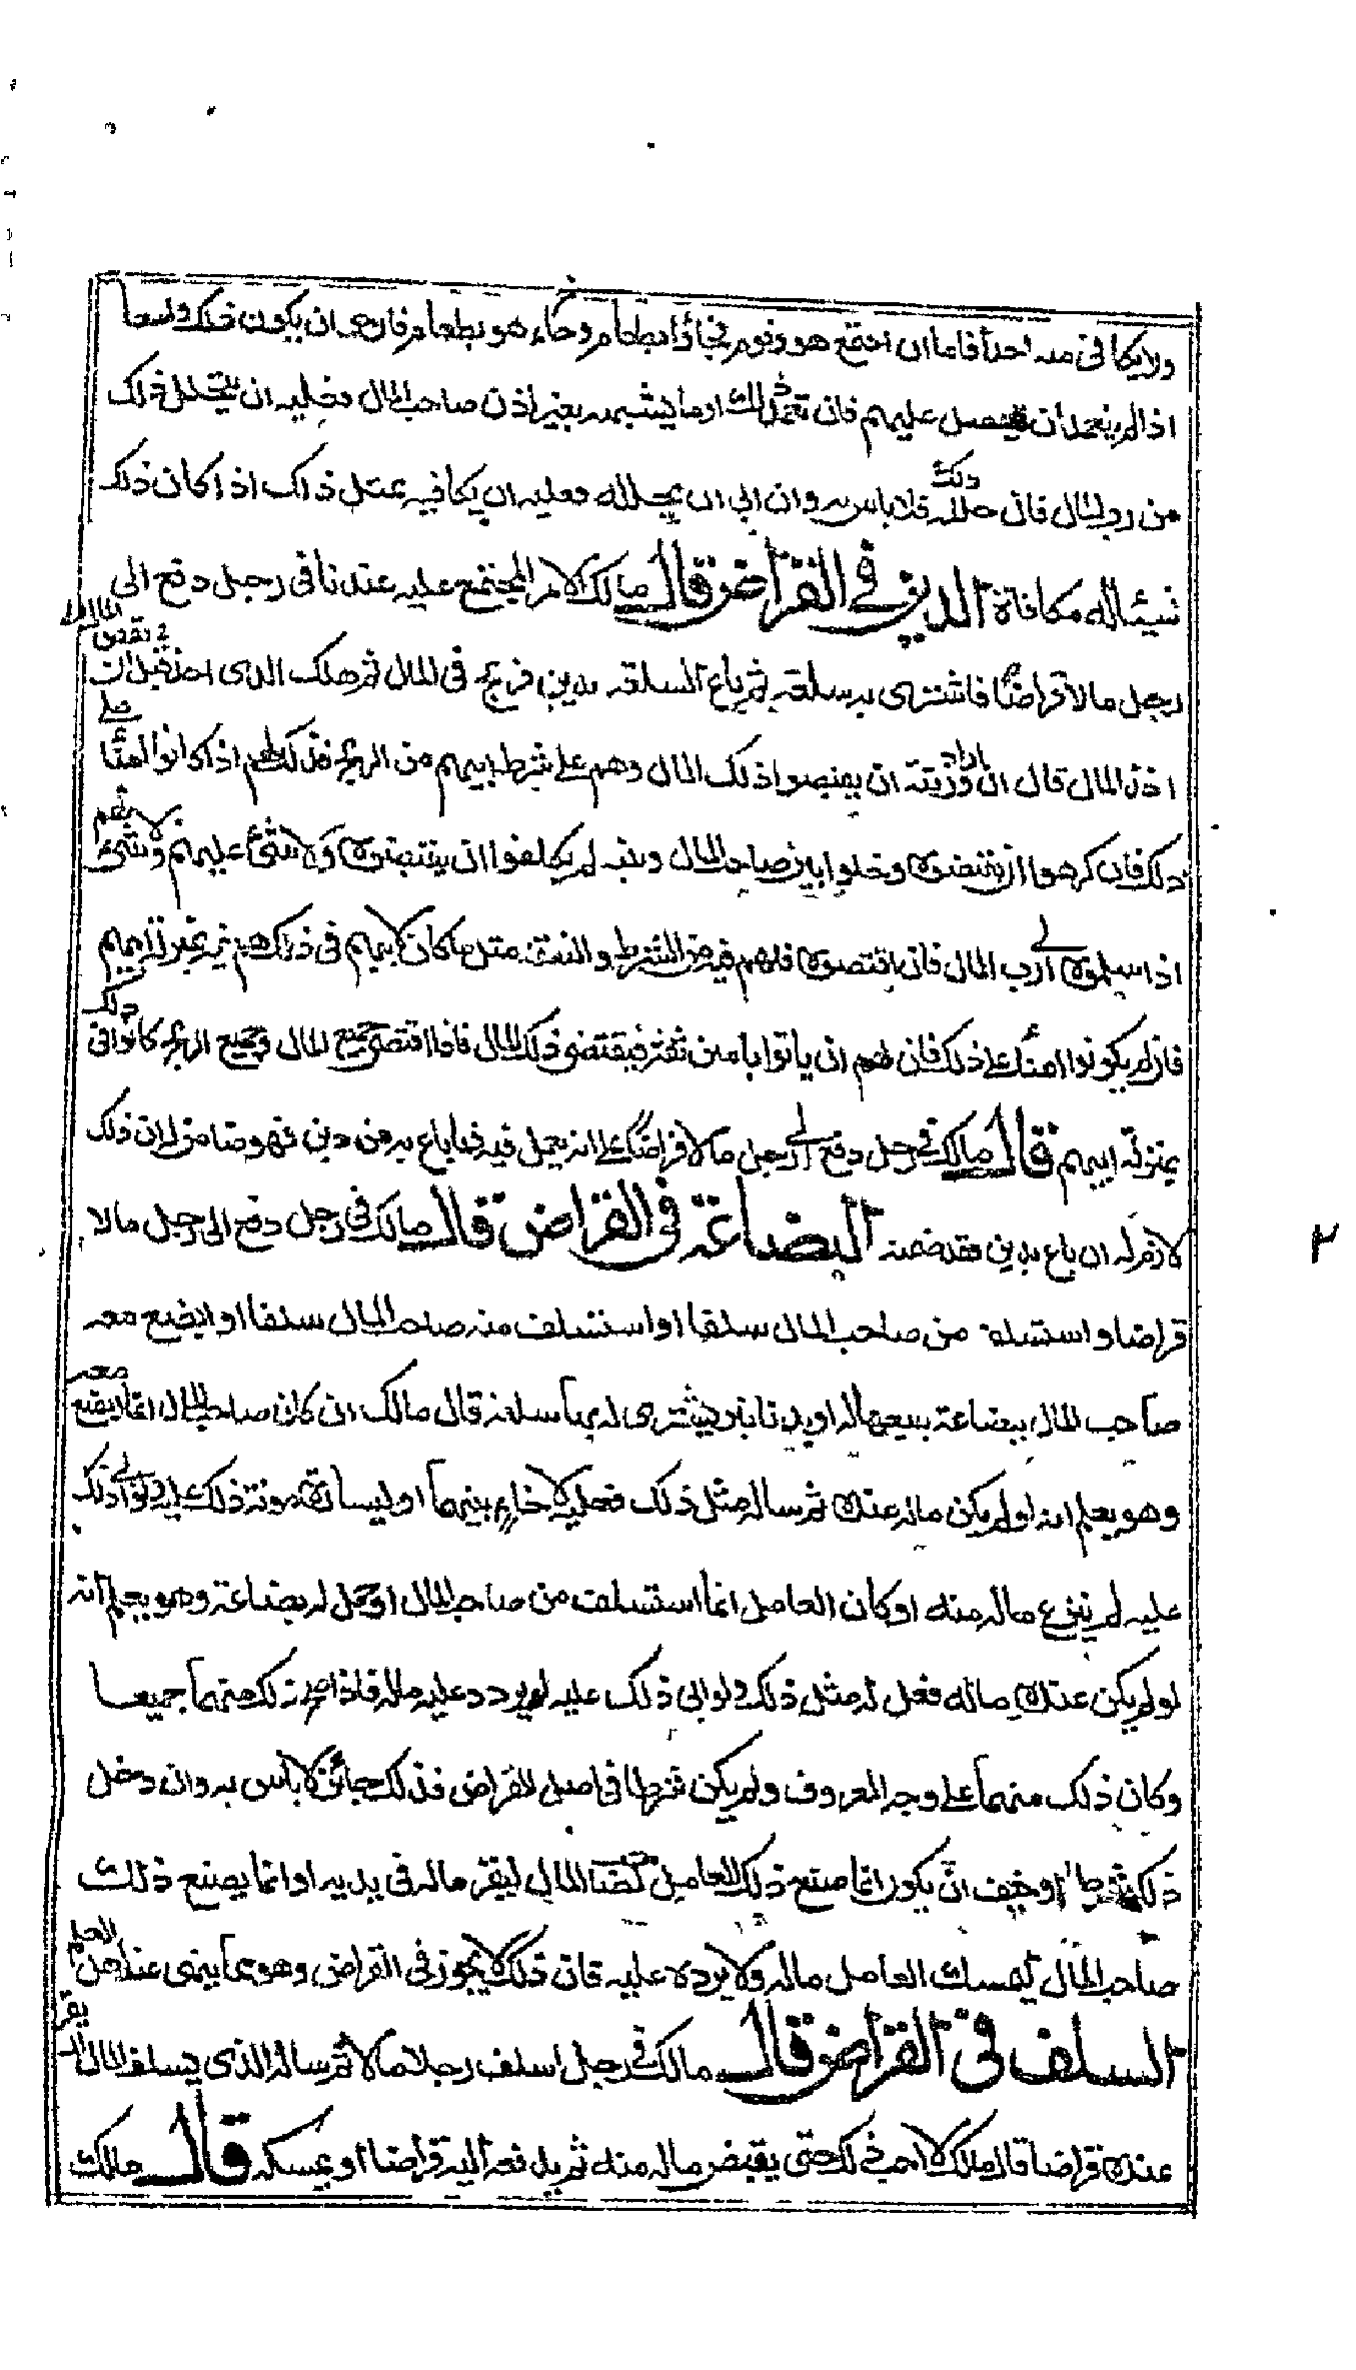 ولا يكافي منه احدا فاما ان اجتمع هو وقوم فجاؤا بطعام وجاء هو بطعام فارجو ان يكون ذلك واسعا
اذا لم يتعمد ان يتفضل عليهم فان تعمد ذلك او ما يشبهه بغير اذن صاحب المال فعليه ان يتحلل ذلك
من رب المال فان حلله ذلك فلا باس به وان ابى ان يحلله فعليه ان يكافيه بمثل ذلك اذا كان ذلك
شيئا له مكافاة الدين في القراض قال مالك الامر المجتمع عليه عندنا في رجل دفع الى
رجل مالا قراضا فاشترى به سلعة ثم باع السلعة بدين فربح في المال ثم هلك الذي اخذ قبل ان
المال قال ان اراد ورثته ان يقبضوا ذلك المال وهم على شرط ابيهم من الربح فذلك لهم اذا كانوا امنا
ذلك فان كرهوا ان يقتضوه وخلوا بين صاحب المال وبينه لم يكلفوا ان يقتضوه ولا شئ عليهم ولا شئ لهم
اذا اسلموه الى رب المال فان اقتضوه فلهم فيه من الشرط والنفقة مثل ما كان لابيهم في ذلك هم فيه بمنزلة ابيهم
فان لم يكونوا امنا على ذلك فان لهم ان ياتوا بامين ثقة فيقتضي ذلك المال فاذا اقتضى جميع المال وجميع الربح كانوا في ذلك
بمنزلة ابيهم قال مالك في رجل دفع الى رجل مالا قراضا على انه يعمل فيه فما باع به من دين فهو ضامن له ان ذلك
لازم له ان باع بدين فقد ضمنه البضاعة في القراض قال مالك في رجل دفع الى رجل مالا
قراضا واستسلف من صاحب المال سلفا او استسلف منه صاحب المال سلفا او ابضع معه
صاحب المال ببضاعة يبيعها له او بدنانير يشتري له بها سلعة قال مالك ان كان صاحب المال انما ابضع معه
وهو يعلم انه لو لم يكن ماله عنده ثم ساله مثل ذلك فعله لاخاء بينهما او ليسارة مونة ذلك عليه ولو ابى ذلك
عليه لم ينزع ماله منه او كان العامل انما استسلف من صاحب المال او حمل له بضاعة وهو يعلم انه
لو لم يكن عنده ماله فعل له مثل ذلك ولو ابى ذلك عليه لم يردد عليه ماله فاذا صح ذلك منهما جميعا
وكان ذلك منهما على وجه المعروف ولم يكن شرطا في اصل القراض فذلك جائز لا باس به وان دخل
ذلك شرط او خيف ان يكون انما صنع ذلك العامل لصاحب المال ليقر ماله في يديه او انما يصنع ذلك
صاحب المال ليمسك العامل ماله ولا يرده عليه فان ذلك لا يجوز في القراض وهو مما ينهى عنه اهل العلم
السلف في القراض قال مالك في رجل اسلف رجلا مالا ثم ساله الذي يسلف المال ان يقر
عنده قراضا قال مالك لا احب ذلك حتى يقبض ماله منه ثم يدفعه اليه قراضا او يمسكه قال مالك